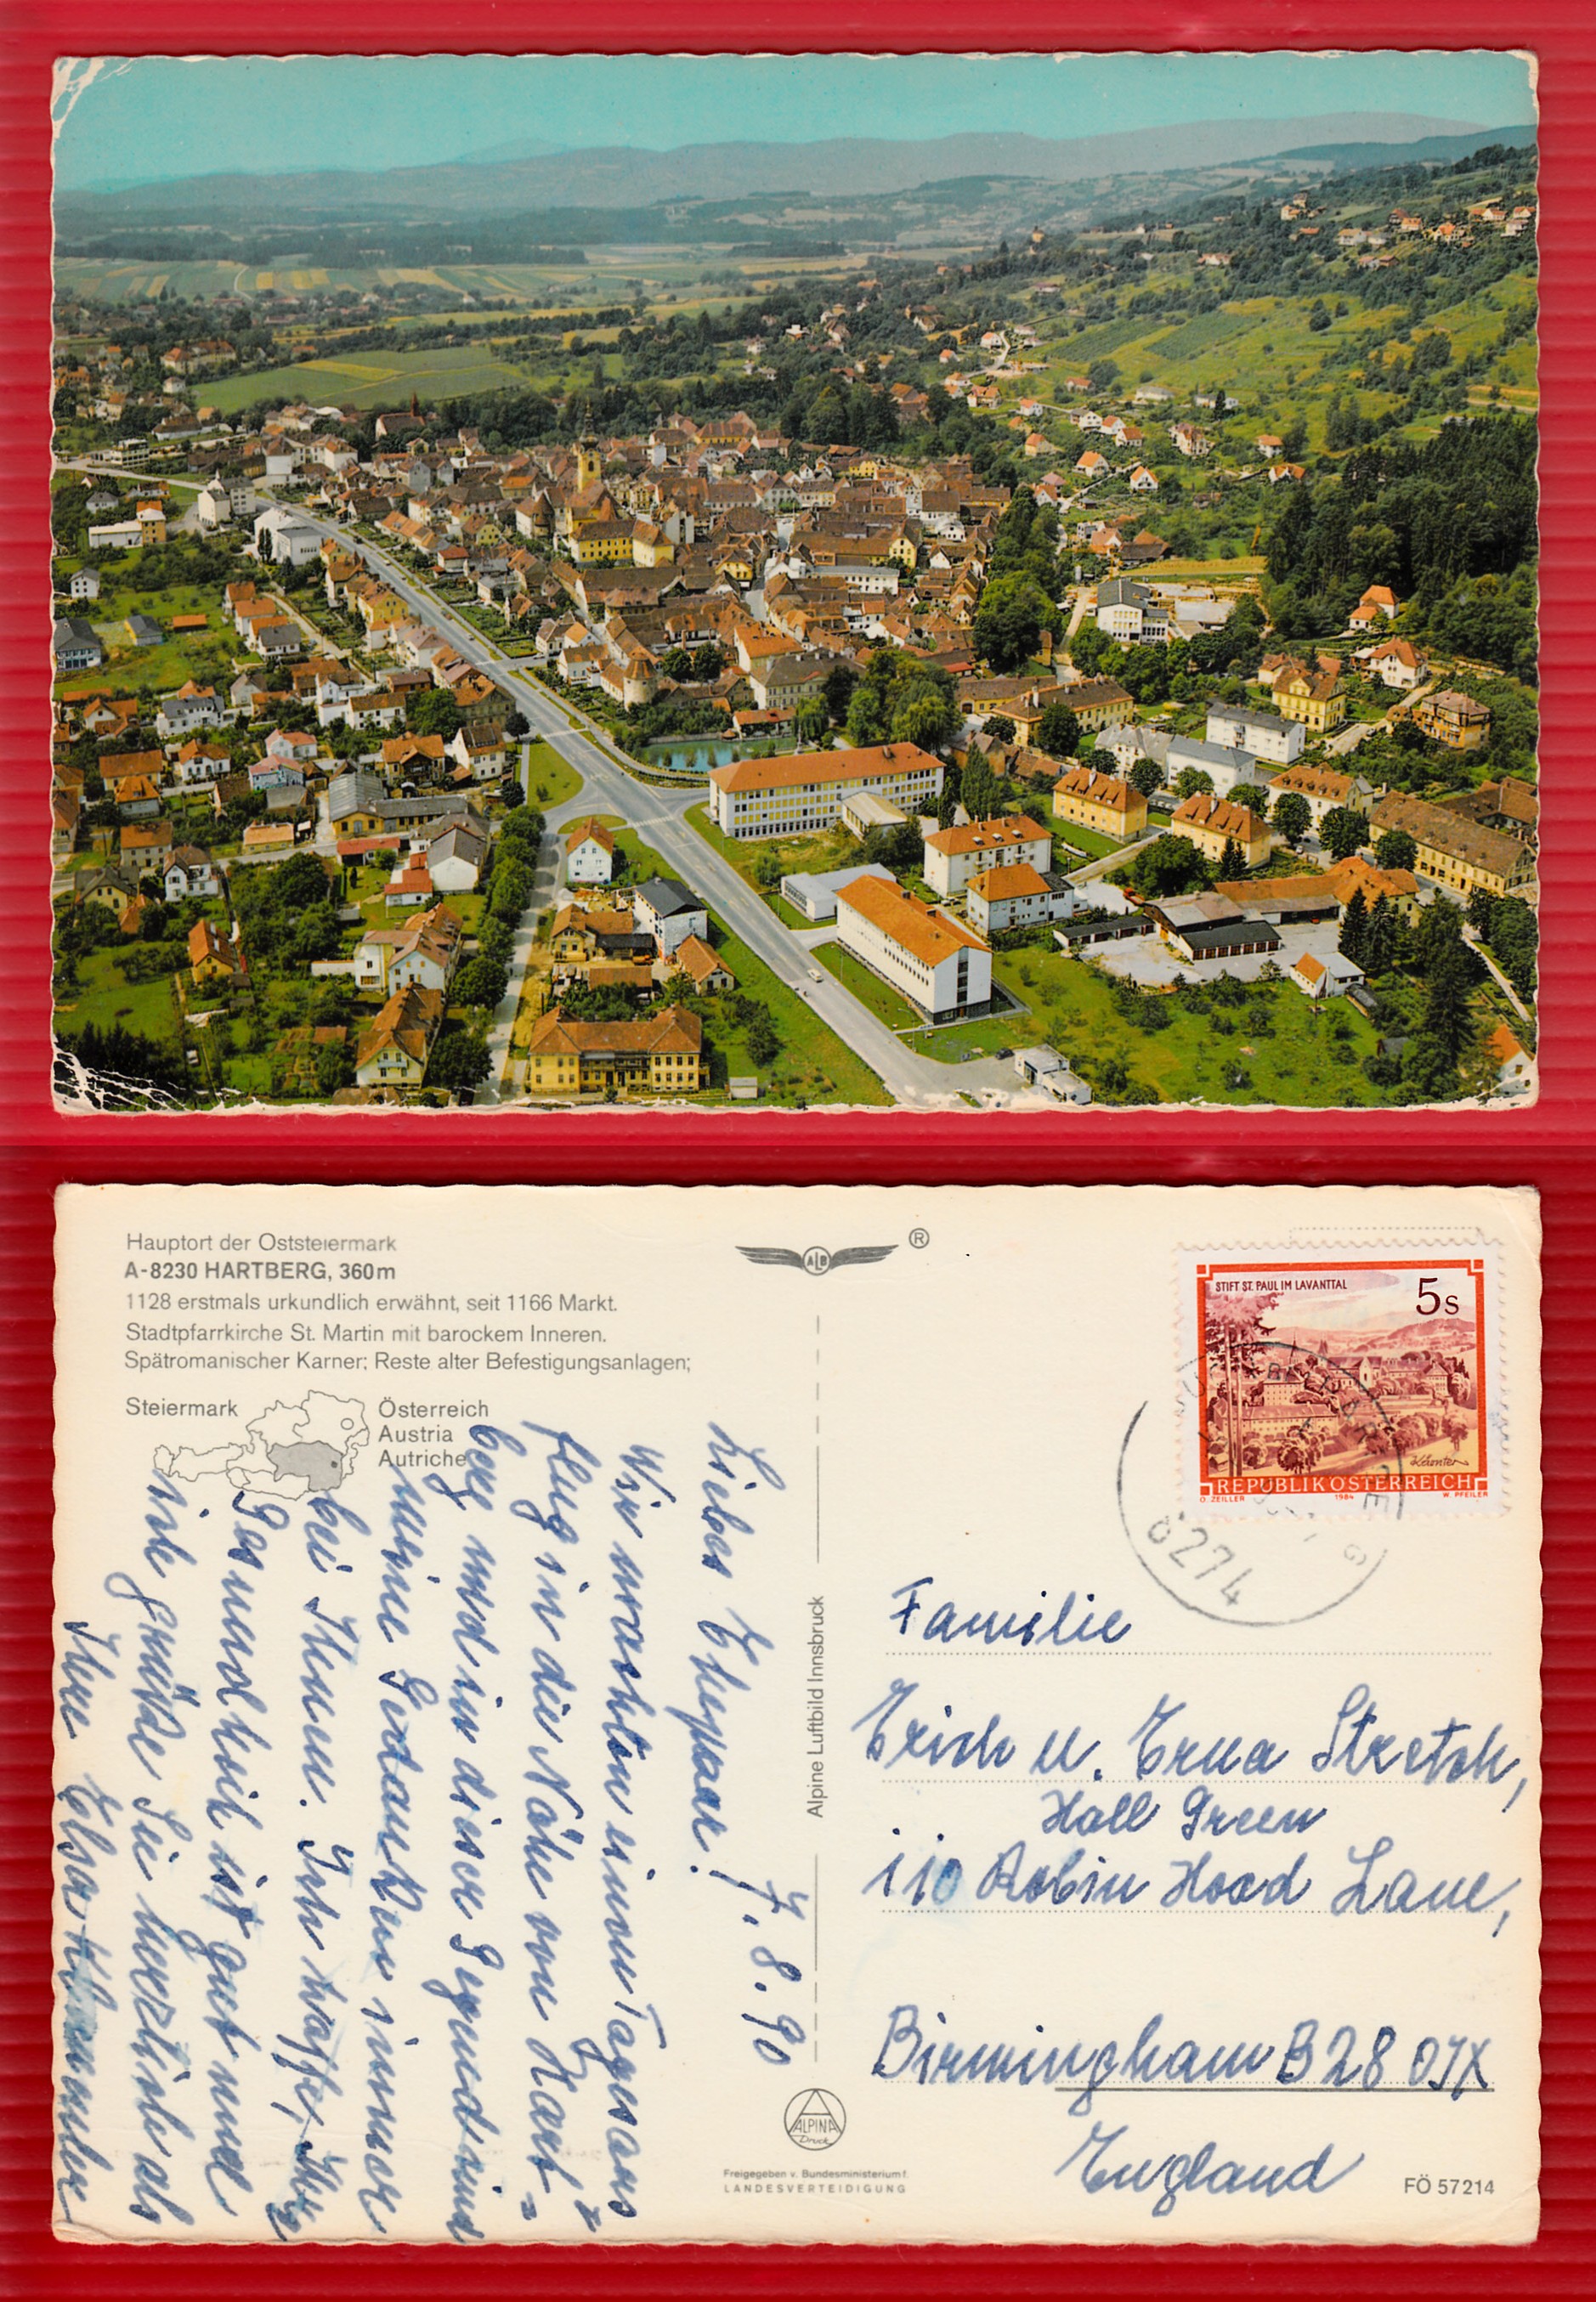 Hauptort der Oststeiermark
A-8230 HARTBERG, 360m
1128 erstmals urkundlich erwähnt, seit 1166 Markt.
Stadtpfarrkirche St. Martin mit barockem Inneren.
Spätromanischer Karner; Reste alter Befestigungsanlagen;
Steiermark
Österreich
Austria
Autriche
ALB ®
7.8.90
Liebes Ehepaar!
Wir machten einen Tagesaus=
flug in die Nähe von Hart=
berg und in dieser Gegend sind
meine Gedanken immer
bei Ihnen. Ich hoffe, Ihre
Gesundheit ist gut und
viele Grüße Sie herzlich als
Ihre Elsa
Alpine Luftbild Innsbruck
ALPINA
Druck
Freigegeben v. Bundesministerium f.
LANDESVERTEIDIGUNG
STIFT ST. PAUL IM LAVANTTAL
5s
Kärnten
REPUBLIK ÖSTERREICH
O. ZEILLER 1984 W. PFEILER
8274
Familie
Erich u. Erna Stretch,
Hall Green
110 Robin Hood Lane,
Birmingham B28 0JX
England
FÖ 57214